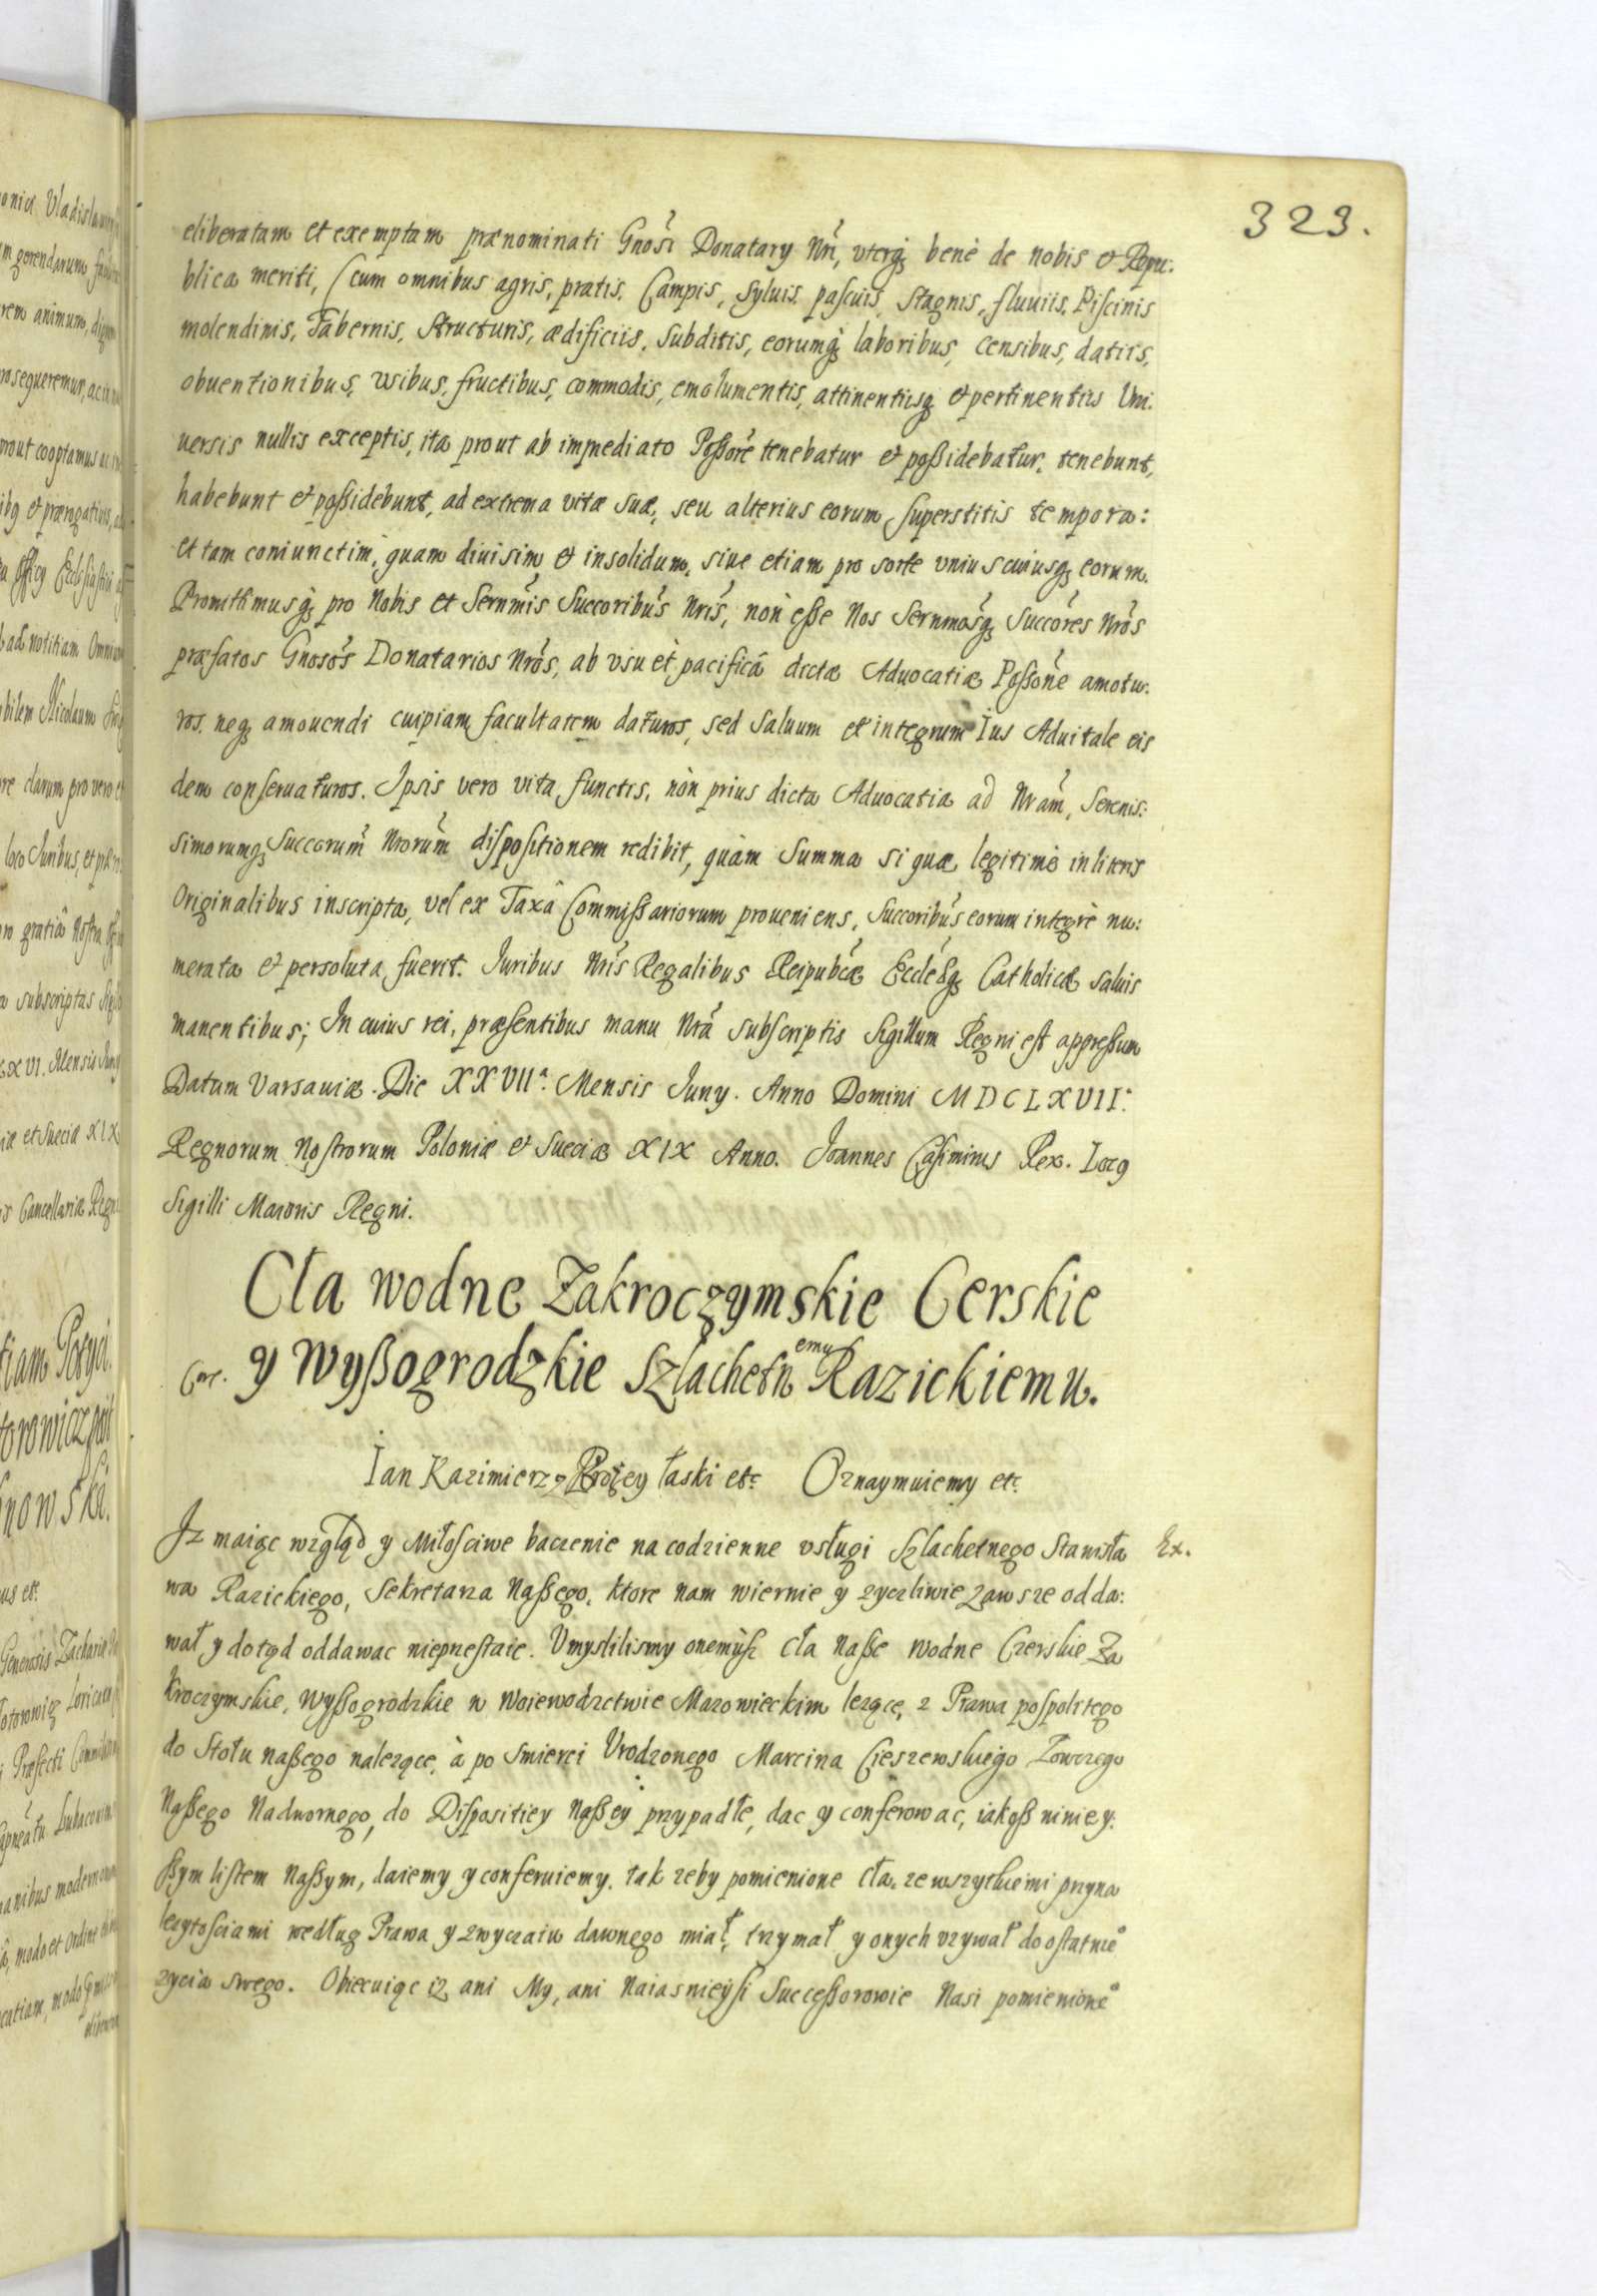 323.
eliberatam et exemptam prænominati Gnosi Donatary Nri, vterq; benè de nobis et Repu:
blica meriti, (cum omnibus agris, pratis, Campis, Syluis, pascuis, Stagnis, fluuiis, Piscinis
molendinis, Tabernis, Structuris, ædificiis, Subditis, eorumq; laboribus, censibus, datiis,
obuentionibus, vsibus, fructibus, commodis, emolumentis, attinentiisq; et pertinentiis Uni:
uersis nullis exceptis, ita prout ab immediato Poßore tenebatur et poßidebatur, tenebunt,
habebunt et poßidebunt, ad extrema vitæ suæ, seu alterius eorum superstitis tempora:
et tam coniunctim, quam diuisim et insolidum, siue etiam pro sorte vniuscuiusq; eorum.
Promittimusq; pro Nobis et Sernmis Succoribus Nris, non eße Nos Sernmosq; Succores Nros
præfatos Gnosos Donatarios Nros, ab vsu et pacificâ dictæ Aduocatiæ Poßone amotu:
ros, neq; amouendi cuipiam facultatem daturos, sed saluum et integrum Ius Aduitale eis
dem conseruaturos. Ipsis vero vita functis, non prius dicta Aduocatia ad Nram, Serenis:
simorumq; Succorum Nrorum dispositionem redibit, quàm Summa si quæ legitimè in literis
Originalibus inscripta, vel ex Taxâ Commißariorum proueniens, Succoribus eorum integrè nu:
merata et persoluta fuerit. Iuribus Nris Regalibus Reipubcæ Eccleæq; Catholicæ saluis
manentibus; In cuius rei, præsentibus manu Nrâ subscriptis Sigillum Regni est appreßum
Datum Varsauiæ. Die XXVIIa. Mensis Iuny. Anno Domini MDCLXVII.
Regnorum Nostrorum Poloniæ et Sueciæ XIX Anno. Ioannes Casimirus Rex. Locg
Sigilli Maioris Regni.
Cła wodne Zakroczymskie Cerskie
y Wyßogrodzkie Szlachetnemu Razickiemu.
Ian Kazimierz z Bożey łaski etc. Oznaymuiemy etc.
Iz maiąc wzgląd y Miłosciwe baczenie na codzienne vsługi Szlachetnego Stanisła Ex.
wa Razickiego, Sekretarza Naßego, ktore nam wiernie y zyczliwie zawsze odda:
wał y dotąd oddawac nieprzestaie. Vmyslilismy onemusz cła Naße wodne Czerskie Za
kroczymskie, Wyßogrodzkie w Woiewodztwie Mazowieckim lezące, z Prawa pospolitego
do Stołu naßego nalezące, à po smierci Vrodzonego Marcina Cieszewskiego Łowczego
Naßego Nadwornego, do Dispositiey Naßey przypadłe, dac y conferowac, iakosz niniey:
ßym listem Naßym, daiemy y conferuiemy. tak zeby pomienione cła, ze wszytkiemi przyna
lezytosciami według Prawa y zwyczaiu dawnego miał, trzymał y onych vzywał do ostatnieo
zycia swego. Obiecuiąc iz ani My, ani Naiasnieyßi Succeßorowie Nasi pomienioneo